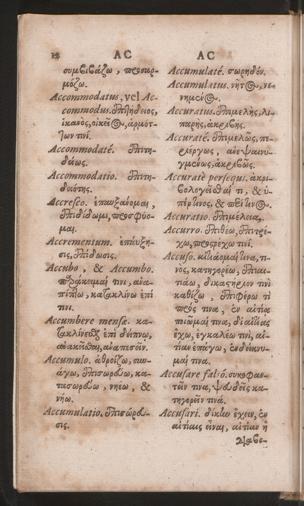 12 AC AC
συμβιβάζω, προσαρ-
μόζω.
Accommodatus, vel Ac-
commodus. ἐπιτήδειος,
ἱκανὸς, οἰκεῖος, ἁρμότ-
των τινί.
Accommodatè. ἐπιτη-
δείως.
Accommodatio. ἐπιτη-
δειότης.
Accresco. ἐπαυξάομαι,
ἐπιδίδωμι, προσφύο-
μαι.
Accrementum. ἐπαύξη-
σις, ἐπίδοσις.
Accubo, & Accumbo.
παράκειμαί τινι, ἀνα-
πίπτω, κατακλίνω ἐπί
τινι.
Accumbere mensæ. κα-
τακλίνεσθαι ἐπὶ δείπνῳ,
ἀνακεῖσθαι, ἀναπεσεῖν.
Accumulo. ἀθροίζω, συν-
άγω, ἐπισωρεύω, κα-
τασωρεύω, νηέω, &
νήω.
Accumulatio. ἐπισώρευ-
σις.
Accumulatè. σωρηδόν.
Accumulatus. νητὸς, νε-
νημένος.
Accuratus. ἐπιμελὴς, λι-
παρὴς, ἀκριβής.
Accuratè. ἐπιμελῶς, πε-
ριέργως,
ἀκριβῶς.
Accuratè persequi. ἀκρι-
βολογεῖσθαί τι, & ὑ-
πέρ τινος, & περί τινος.
Accuratio. ἐπιμέλεια.
Accurro. ἐπιθέω, ἐπιτρέ-
χω, προστρέχω τινί.
Accuso. αἰτιάομαί τινα, τι-
νος, κατηγορέω, ἐπαι-
τιάω, δικάσιμόν τινι
καθίζω, ἐπιφέρω τι
πρός τινα, ἐν αἰτίᾳ
ποιοῦμαί τινα, δι' αἰτίας
ἔχω, ἐγκαλέω τινὶ, αἰ-
τίαν ἐπάγω, ἐνδείκνυ-
μαί τινα.
Accusare falsò. συκοφαν-
τεῖν τινα, ψευδῶς κα-
τηγορεῖν τινά.
Accusari. δίκην ἔχειν, ἐν
αἰτίαις εἶναι, αἰτίαν ἢ
διαβο-